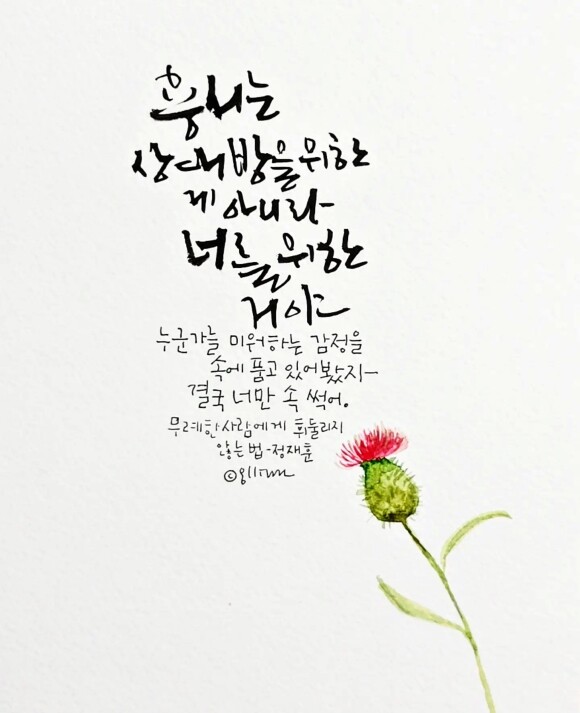 용서는
상대방을 위한
게 아니라
너를 위한
거야
누군가를 미워하는 감정을
속에 품고 있어봤자
결국 너만 속 썩어.
무례한 사람에게 휘둘리지
않는 법 - 정재훈
©